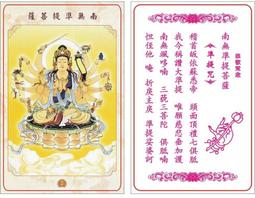 南無準提菩薩
南無準提菩薩
《準提咒》
稽首皈依蘇悉帝　頭面頂禮七俱胝
我今稱讚大準提　唯願慈悲垂加護
南無颯哆喃　三藐三菩陀　俱胝喃
怛姪他　唵　折戾主戾　準提娑婆訶